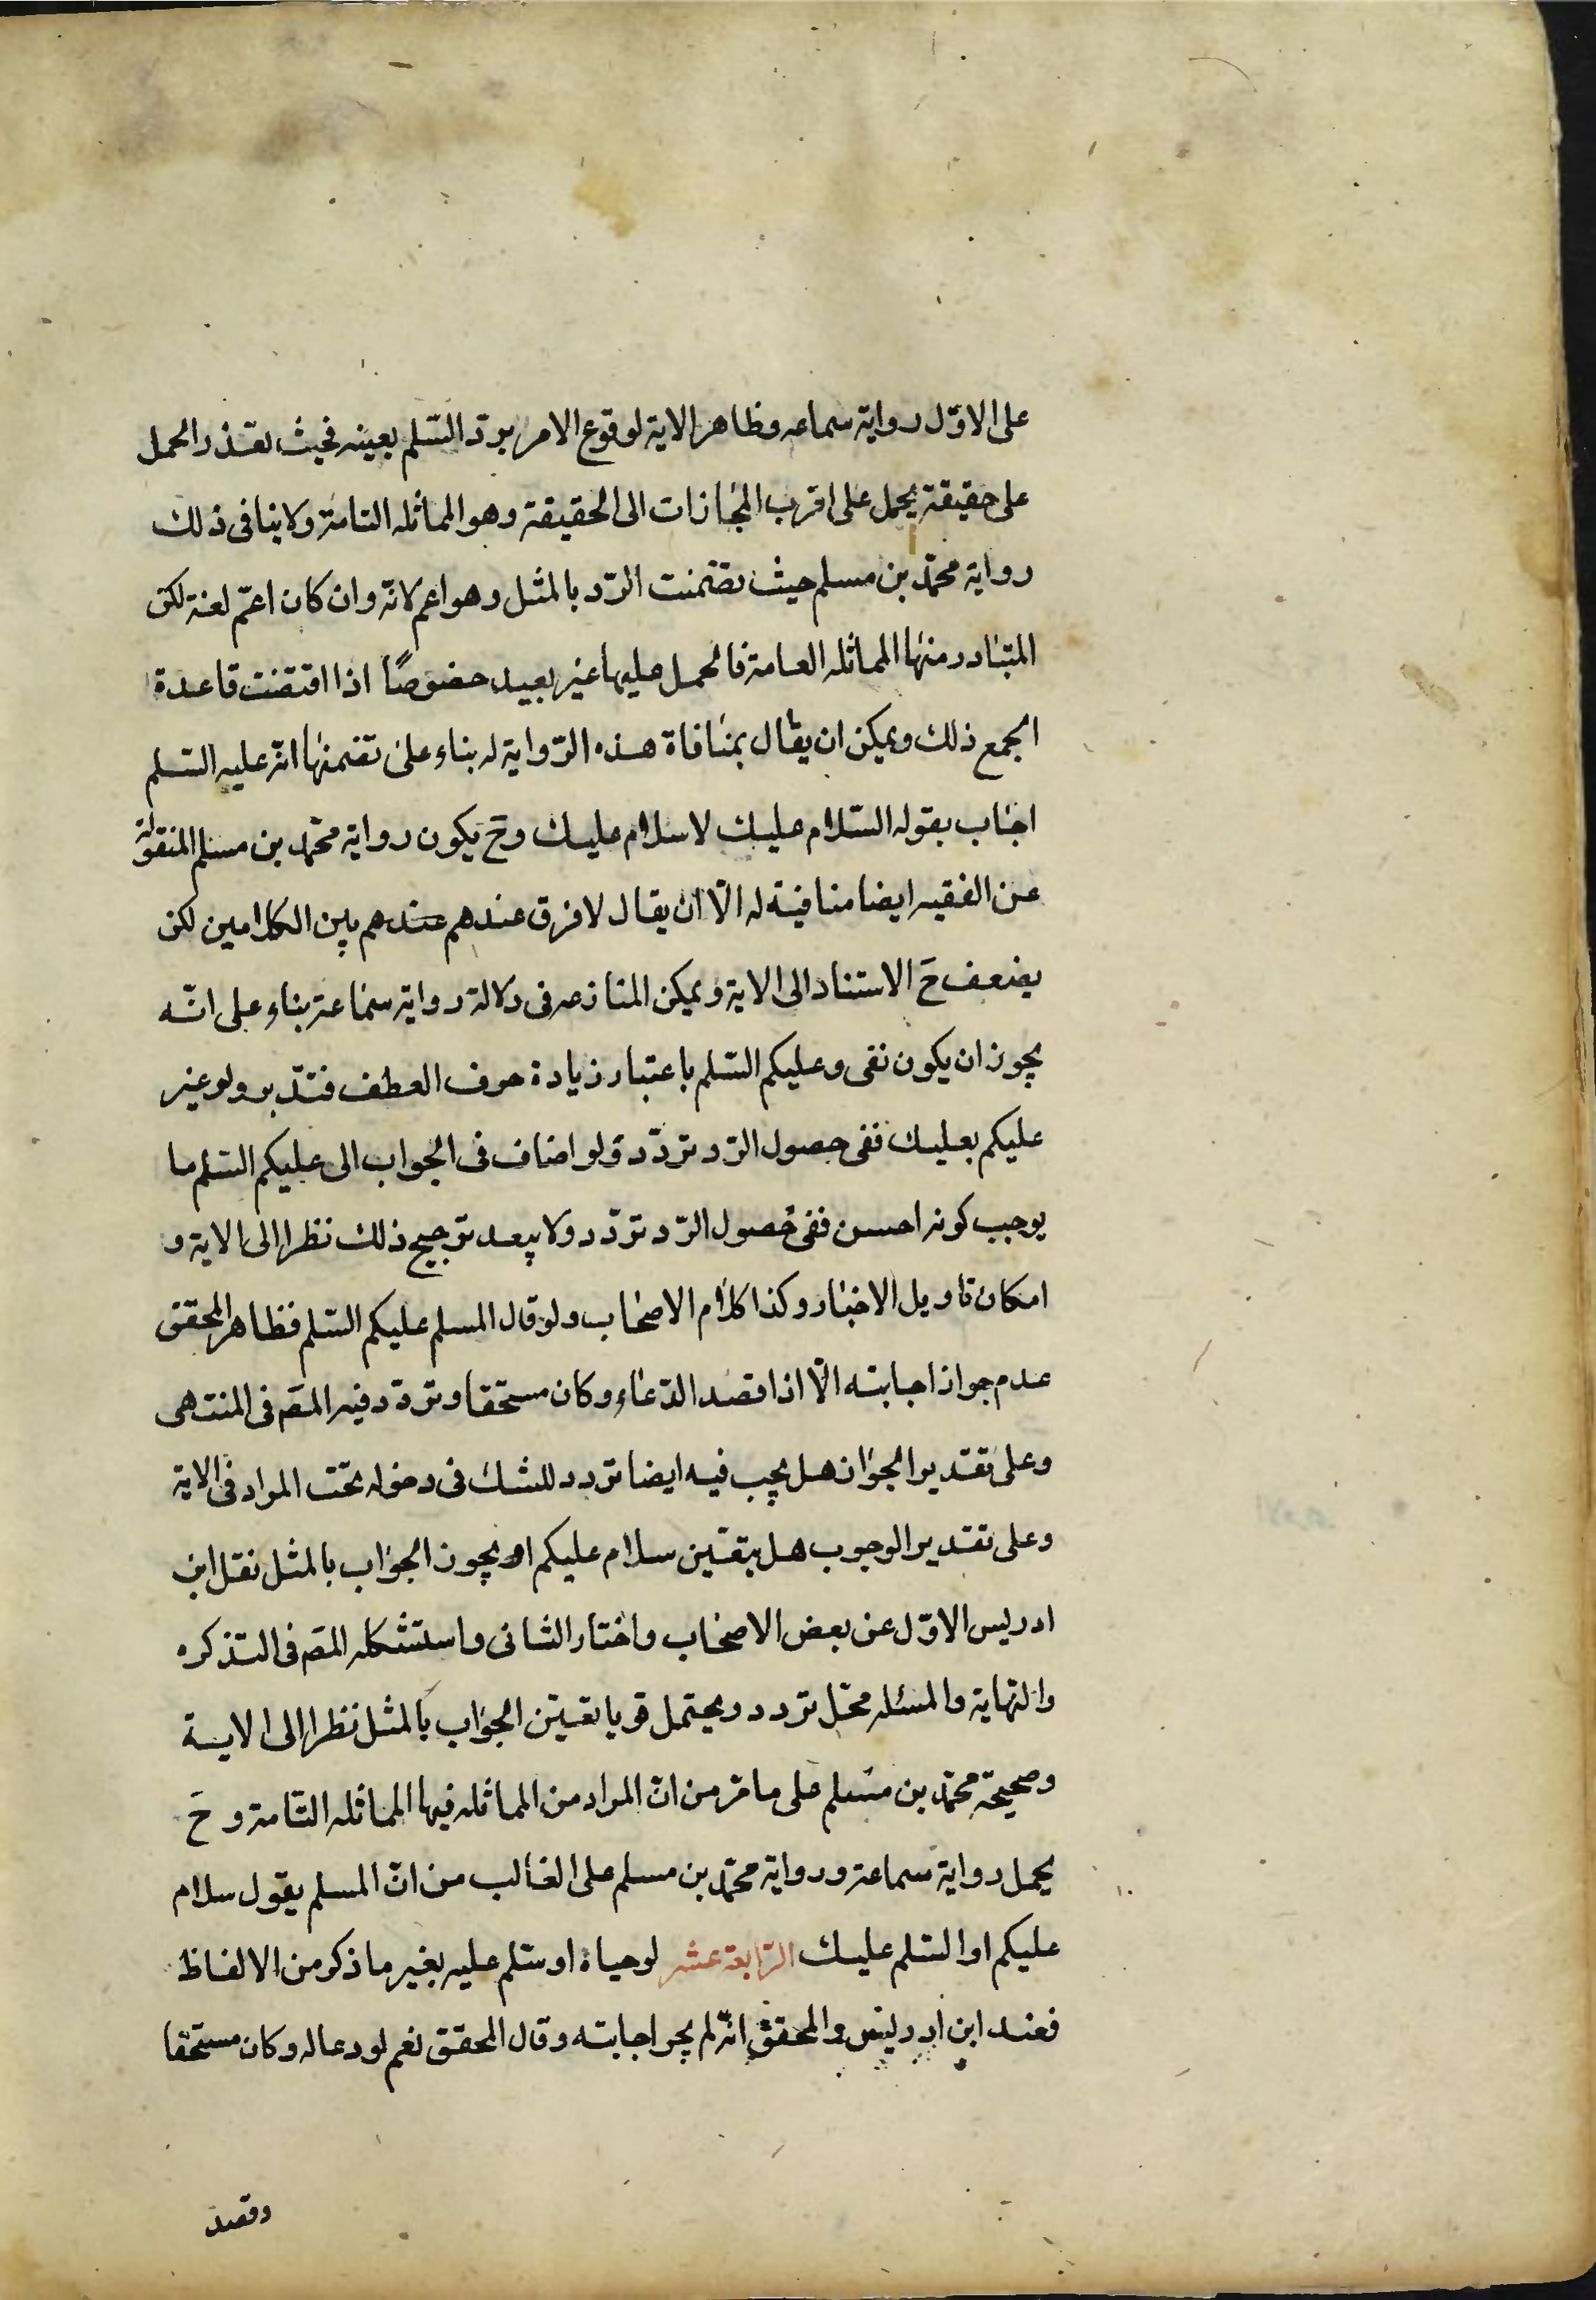 على الاوّل رواية سماعه وظاهر الاية لوقوع الامر بردّ السّلم بعينه فحيث تعذر الحمل
على حقيقته يحمل على اقرب المجازات الى الحقيقة وهو المماثله التامة ولا ينافى ذلك
رواية محمّد بن مسلم حيث تضمّنت الرّد بالمثل وهو اعم لانّه وان كان اعمّ لغة لكن
المتبادر منها المماثله العامة فالحمل عليها غير بعيد خصوصًا اذا اقتضت قاعدة
الجمع ذلك ويمكن ان يقال بمنافاة هذه الرّواية له بناء على تضمنها انّه عليه السّلم
اجاب بقوله السّلام عليك لا سلام عليك وحَ يكون رواية محمّد بن مسلم المنقولة
عن الفقيه ايضا منافية له الّا ان يقال لا فرق عندهم عندهم بين الكلامين لكن
يضعف حَ الاستناد الى الاية ويمكن المنازعه فى دلالة رواية سماعة بناء على انّه
يجوز ان يكون نفى وعليكم السّلم باعتبار زيادة حرف العطف فتدّبر ولو غير
عليكم بعليك ففى حصول الرّد تردّد ولو اضاف فى الجواب الى عليكم السّلم ما
يوجب كونه احسن ففى حصول الرّد تردّد ولا يبعد ترجيح ذلك نظرا الى الاية و
امكان تاويل الاخبار وكذا كلام الاصحاب ولو قال المسلم عليكم السّلم فظاهر المحقق
عدم جواز اجابته الّا اذا قصد الدّعاء وكان مستحقا وتردّد فيه المصَ فى المنتهى
وعلى تقدير الجواز هل يجب فيه ايضا تردد للشك فى دخوله تحت المراد فى الاية
وعلى تقدير الوجوب هل يتعّين سلام عليكم او يجوز الجواب بالمثل نقل ابن
ادريس الاوّل عن بعض الاصحاب واختار الثانى واستشكله المصَ فى التذكره
والنهاية والمسئله محّل تردد ويحتمل قويا تعيّن الجواب بالمثل نظرا الى الاية
وصحيحة محمّد بن مسلم على ما مّر من انّ المراد من المماثله فيها المماثله التّامة و حَ
يحمل رواية سماعة ورواية محمّد بن مسلم على الغالب من انّ المسلم يقول سلام
عليكم او السّلم عليك الرّابعة عشر لو حياه او سّلم عليه بغير ما ذكر من الالفاظ
فعند ابن ادريس والمحقق انّه لم يجز اجابته وقال المحقق نعم لو دعا له وكان مستحقا
وقصد